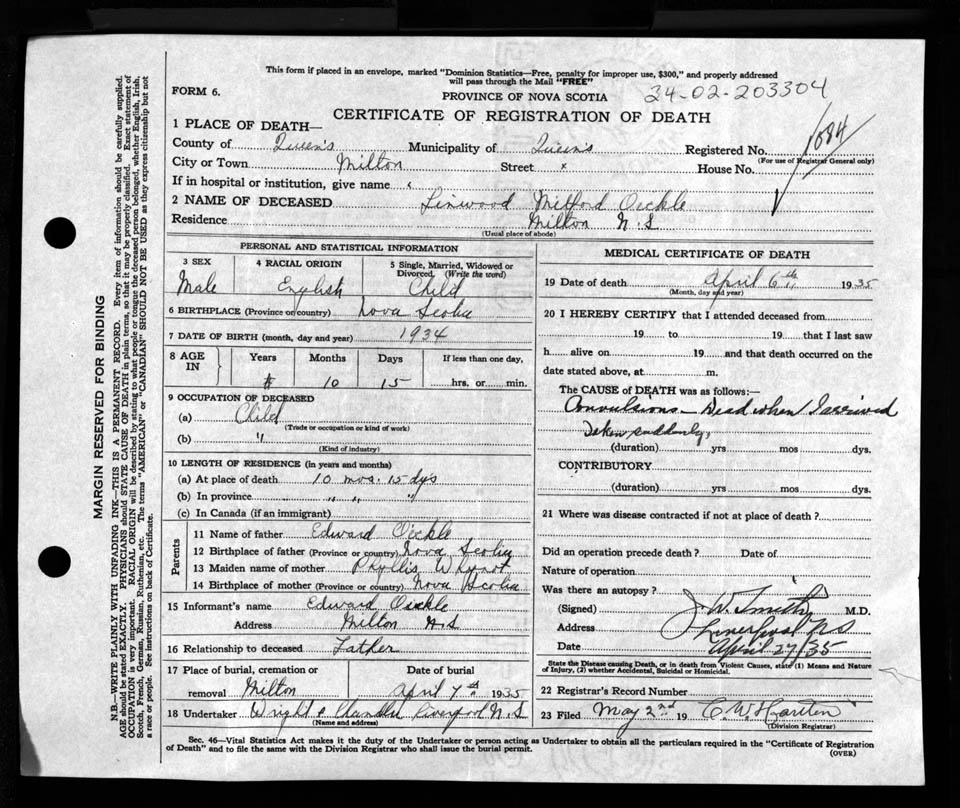 This form if placed in an envelope, marked "Dominion Statistics—Free, penalty for improper use, $300," and properly addressed
will pass through the Mail "FREE"
FORM 6.
PROVINCE OF NOVA SCOTIA
34-02-203304
CERTIFICATE OF REGISTRATION OF DEATH
1 PLACE OF DEATH—
County of Queen's Municipality of Queen's Registered No. 1084
(For use of Registrar General only)
City or Town Milton Street x House No.
If in hospital or institution, give name
2 NAME OF DECEASED Linwood Milford Oickle
Residence Milton N.S
(Usual place of abode)
PERSONAL AND STATISTICAL INFORMATION
3 SEX Male
4 RACIAL ORIGIN English
5 Single, Married, Widowed or Divorced, (Write the word) Child
6 BIRTHPLACE (Province or country) Nova Scotia
7 DATE OF BIRTH (month, day and year) 1934
8 AGE IN Years Months 10 Days 15 If less than one day, hrs. or min.
9 OCCUPATION OF DECEASED
(a) Child
(Trade or occupation or kind of work)
(b) "
(Kind of industry)
10 LENGTH OF RESIDENCE (in years and months)
(a) At place of death 10 mos. 15 dys
(b) In province " " "
(c) In Canada (if an immigrant)
Parents
11 Name of father Edward Oickle
12 Birthplace of father (Province or country) Nova Scotia
13 Maiden name of mother Phyllis Whynot
14 Birthplace of mother (Province or country) Nova Scotia
15 Informant's name Edward Oickle
Address Milton N.S
16 Relationship to deceased Father
17 Place of burial, cremation or removal Milton
Date of burial April 7th 1935
18 Undertaker Wright & Chandler Liverpool N.S
(Name and address)
MEDICAL CERTIFICATE OF DEATH
19 Date of death April 6th 1935
(Month, day and year)
20 I HEREBY CERTIFY that I attended deceased from
19 to 19 that I last saw
h alive on 19 and that death occurred on the
date stated above, at m.
The CAUSE of DEATH was as follows:—
Convulsions — Dead when I arrived
Taken suddenly,
(duration) yrs mos. dys.
CONTRIBUTORY
(duration) yrs mos. dys.
21 Where was disease contracted if not at place of death?
Did an operation precede death? Date of
Nature of operation
Was there an autopsy?
(Signed) J.W. Smith M.D.
Address Liverpool NS
Date April 27/35
State the Disease causing Death, or in death from Violent Causes, state (1) Means and Nature
of Injury, (2) whether Accidental, Suicidal or Homicidal.
22 Registrar's Record Number
23 Filed May 2nd 19 C.W.
(Division Registrar)
Sec. 46—Vital Statistics Act makes it the duty of the Undertaker or person acting as Undertaker to obtain all the particulars required in the "Certificate of Registration
of Death" and to file the same with the Division Registrar who shall issue the burial permit.
(OVER)
MARGIN RESERVED FOR BINDING
N.B.—WRITE PLAINLY WITH UNFADING INK—THIS IS A PERMANENT RECORD. Every item of information should be carefully supplied.
AGE should be stated EXACTLY. PHYSICIANS should STATE CAUSE OF DEATH in plain terms, so that it may be properly classified. Exact statement of
OCCUPATION is very important. RACIAL ORIGIN will be described by stating to what people or tongue the deceased person belonged, whether English, Irish,
Scotch, French, German, Russian, Ruthenian, etc. The terms "AMERICAN" or "CANADIAN" SHOULD NOT BE USED as they express citizenship but not
a race or people. See instructions on back of Certificate.